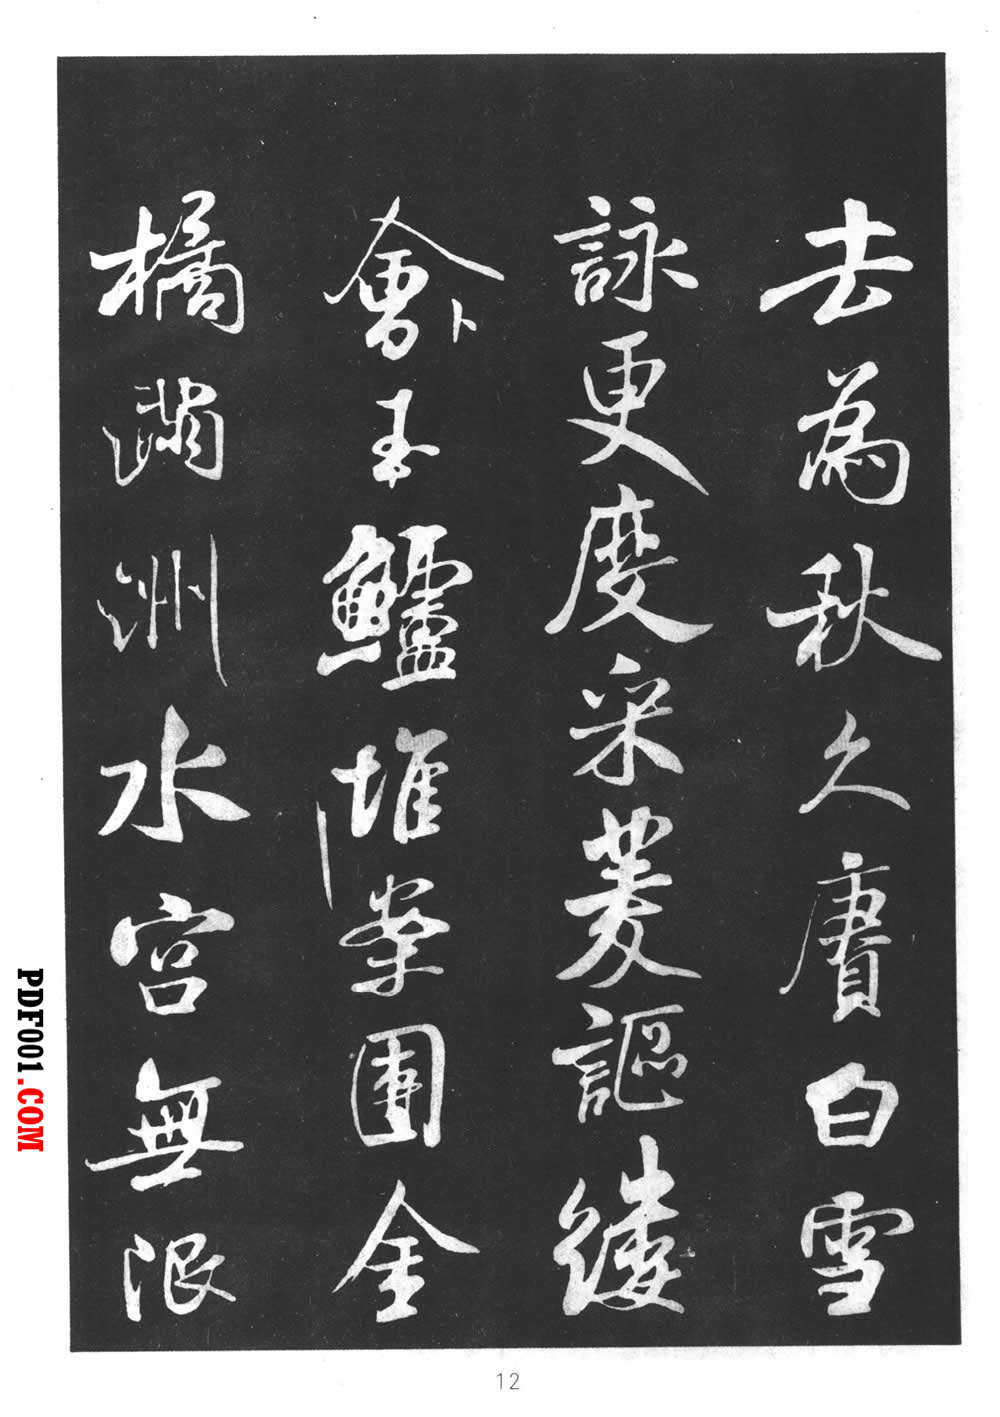 去為秋久賡白雪
詠更度采菱謳縷
會卜玉鱸堆案團金
橘滿洲水宮無限
12
PDF001.COM